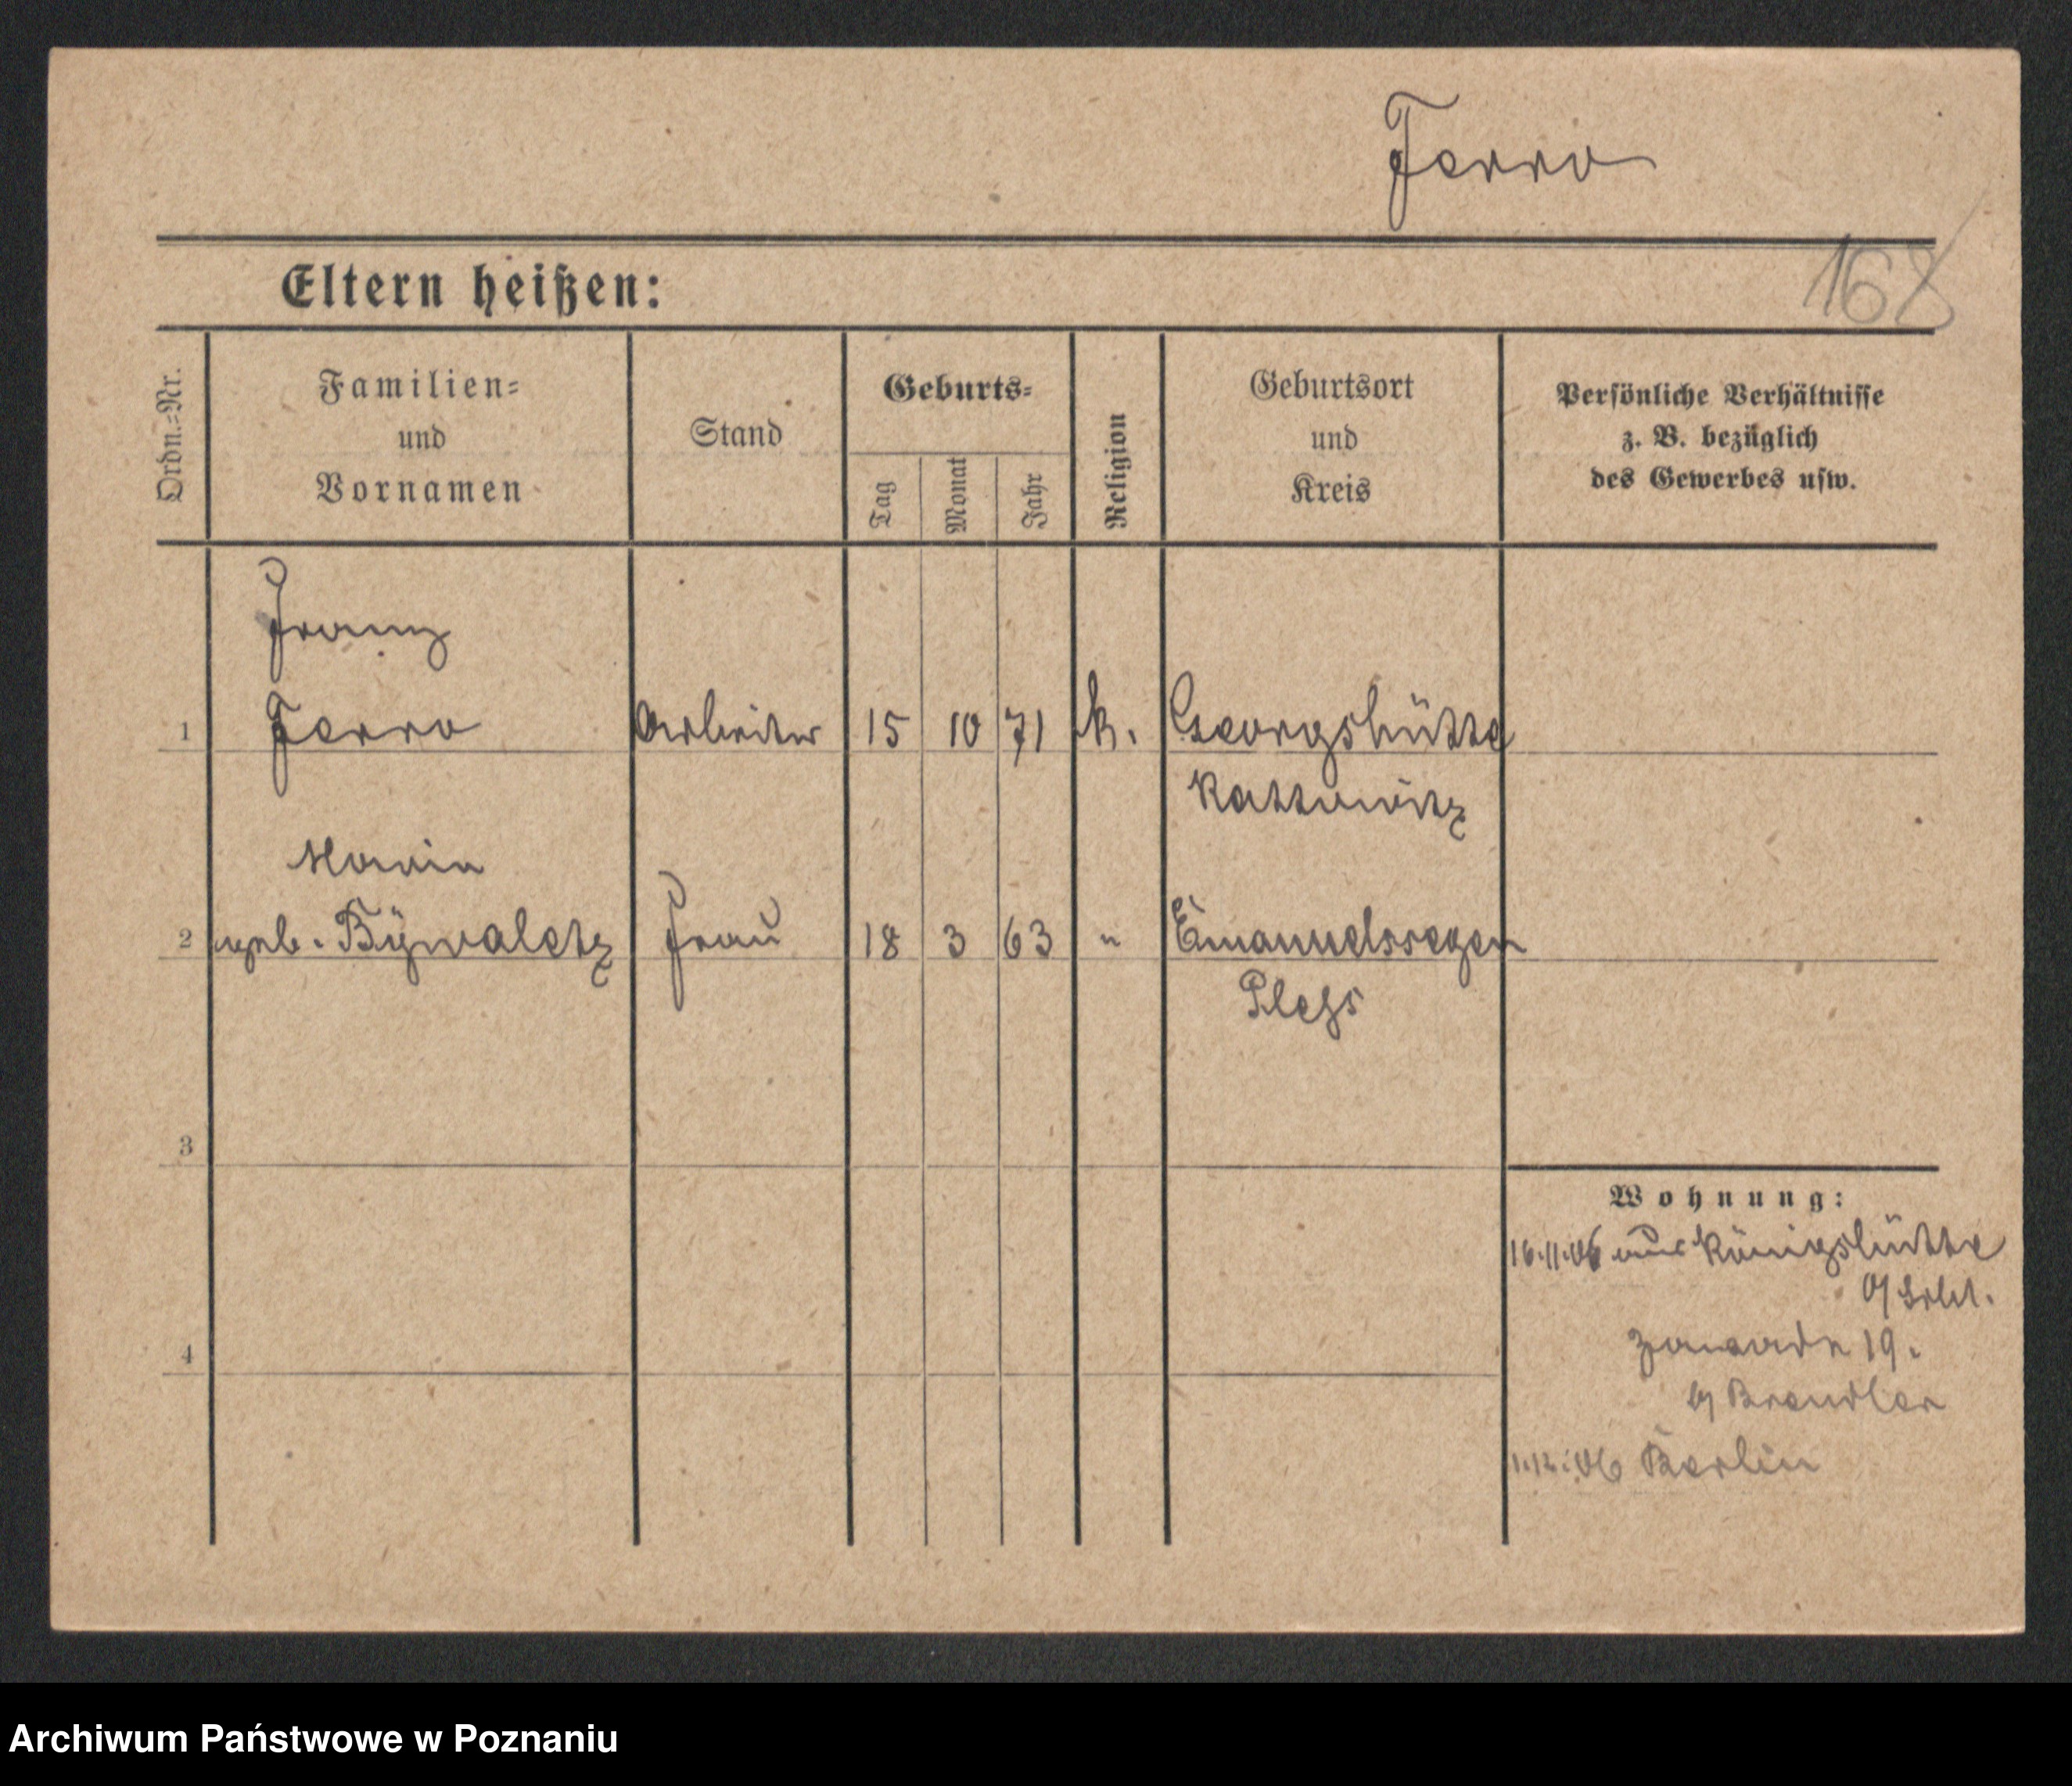 Ferro
168
Eltern heißen:
Ordn.=Nr.
Familien=
und
Vornamen
Stand
Geburts=
Tag
Monat
Jahr
Religion
Geburtsort
und
Kreis
Persönliche Verhältnisse
z. B. bezüglich
des Gewerbes usw.
Franz
1 Ferro Arbeiter 15 10 71 k. Georgshütte
Kattowitz
Maria
2 geb. Bÿwaletz Frau 18 3 63 " Emanuelssegen
Pless
3
Wohnung:
16.11.06 aus Königshütte
O/Schl.
4
Zawade 19.
b/ Brendler
1.12.06 Berlin
Archiwum Państwowe w Poznaniu